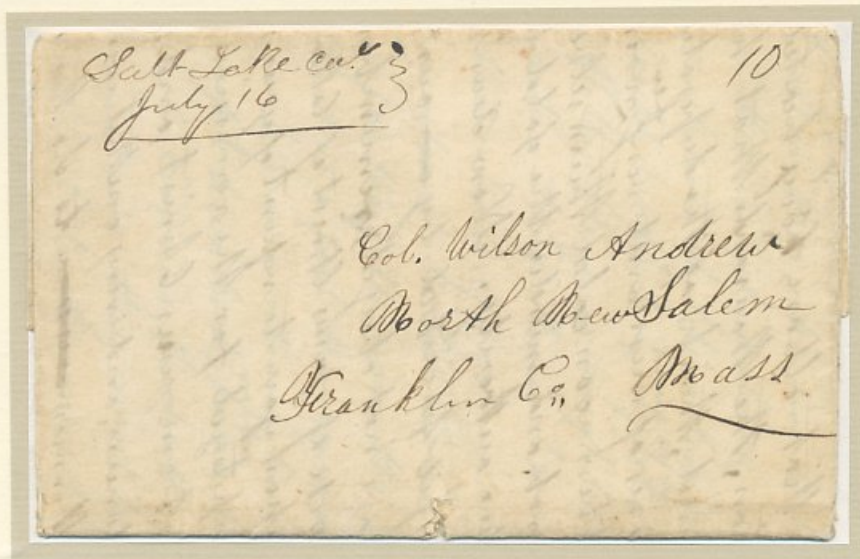 Salt Lake Cal
July 16
10
Col. Wilson Andrew
North New Salem
Franklin Co. Mass